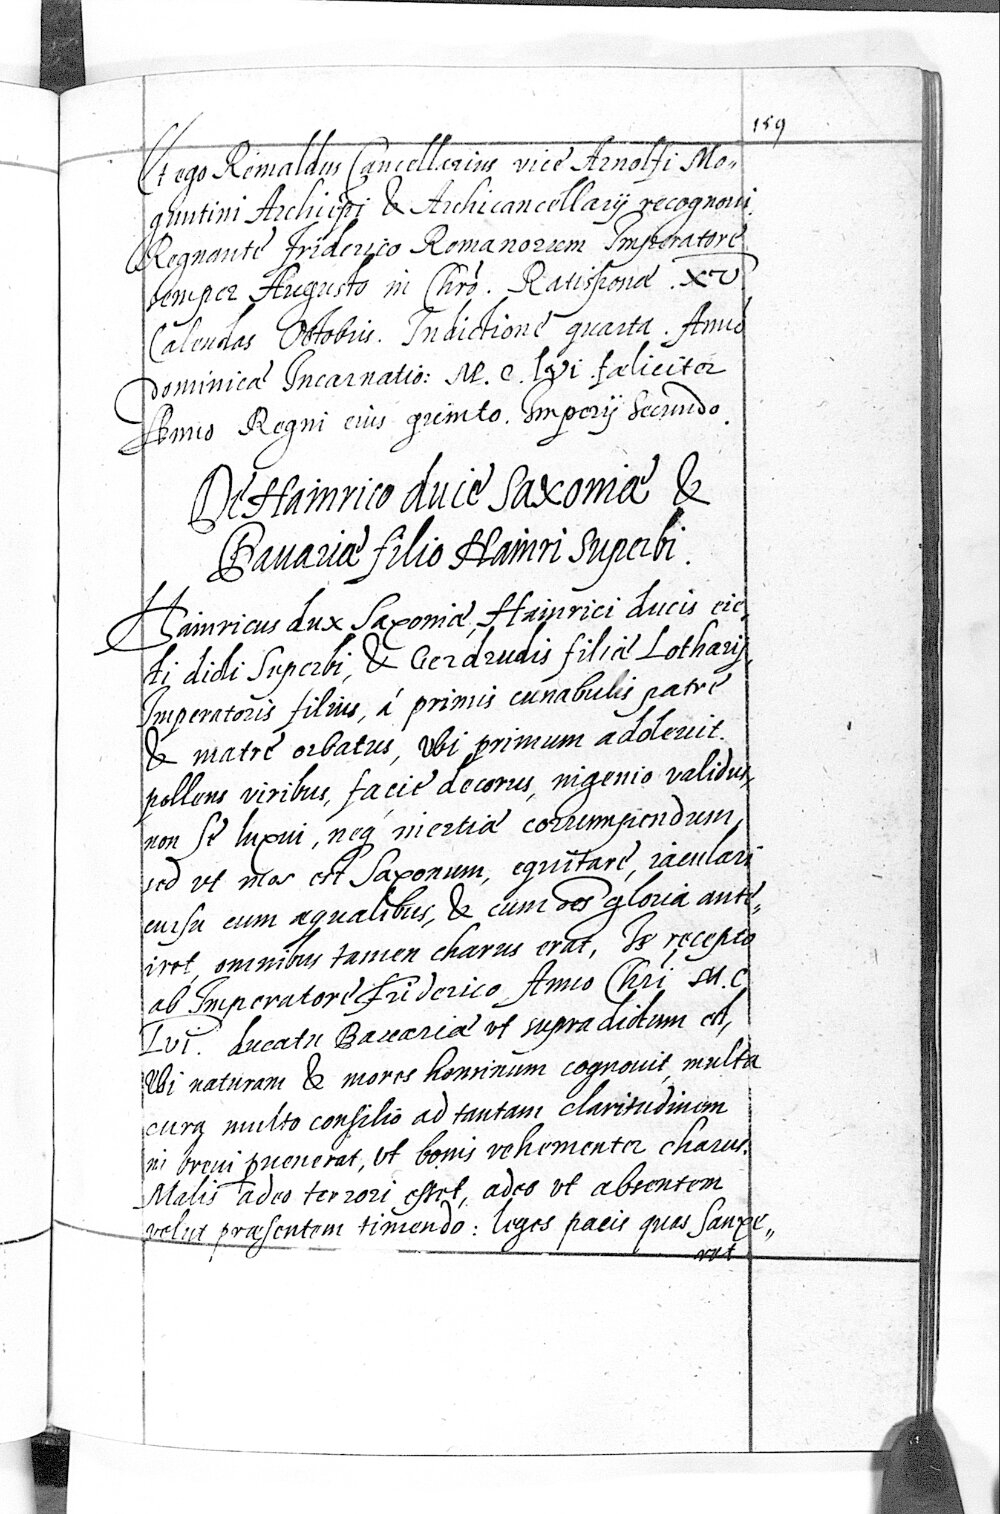 159
Et ego Reinaldus Cancellarius vice Arnolfi Mo„
guntini Archiepi & Archicancellarij recognovi.
Regnante Friderico Romanorum Imperatore
semper Augusto in Chrō. Ratisponæ. XV
Calendas Octobris. Indictione quarta. Anno
dominicæ Incarnatio: M. C. lvi fæliciter
Anno Regni eius quinto. Imperij Secundo.
De Hainrico duce Saxoniæ &
Bauariæ filio Hainri Superbi.
Hainricus dux Saxoniæ, Hainrici ducis eie„
cti dicti Superbi, & Gerdrudis filiæ Lotharij
Imperatoris filius, á primis cunabulis patre
& matre orbatus, Vbi primum adolevit.
pollens viribus, facie decorus, ingenio validus,
non se luxui, neq inertiæ corrumpendum,
sed vt mos est Saxonum, equitare, iaculari
cursu cum æqualibus, & cum oes gloria ante„
iret, omnibus tamen charus erat, Is recepto
ab Imperatore Friderico Anno Chri M. C.
Lvi. ducatu Bauariæ vt supradictum est,
Vbi naturam & mores hominum cognouit, multa
cura multo consilio ad tantam claritudinem
in breui puenerat, vt bonis vehementer charus.
Malis adeo terrori esset, adeo vt absentem
velut præsentem timendo: leges pacis quas sanxe„
rat